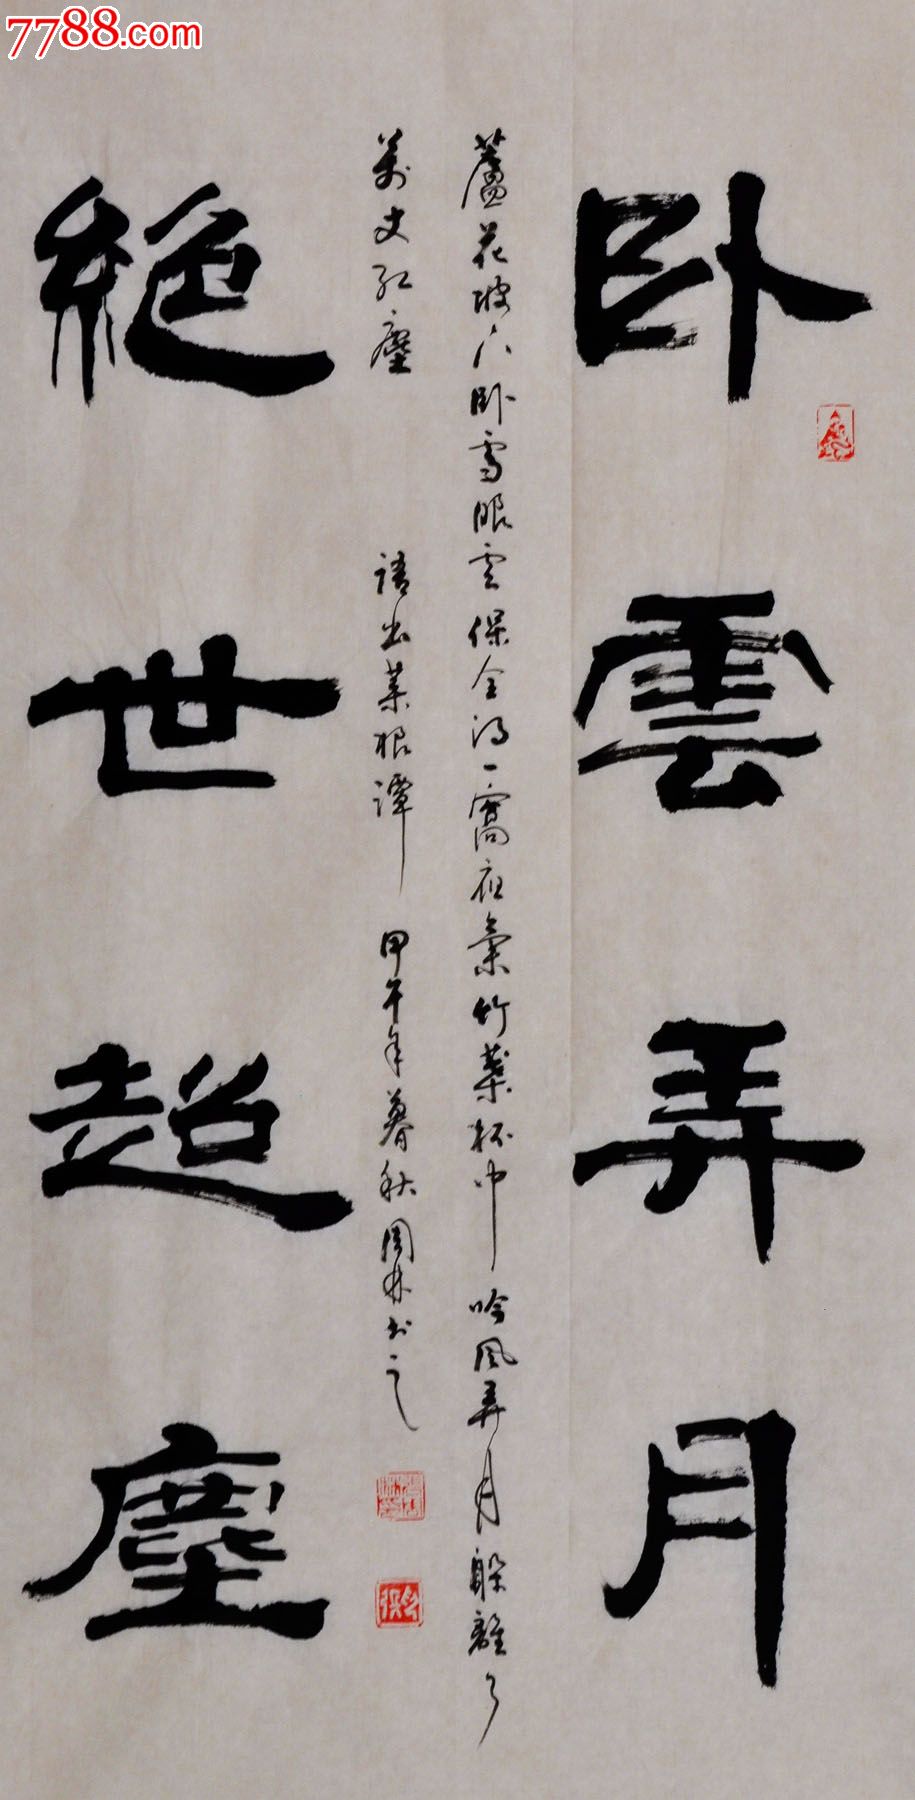 7788.com
卧雲弄月
絕世超塵
蘆花被下卧雪眠雲保全得一窩夜氣竹葉杯中吟風弄月躲離了
萬丈紅塵
語出菜根譚
甲午年暮秋周林书之